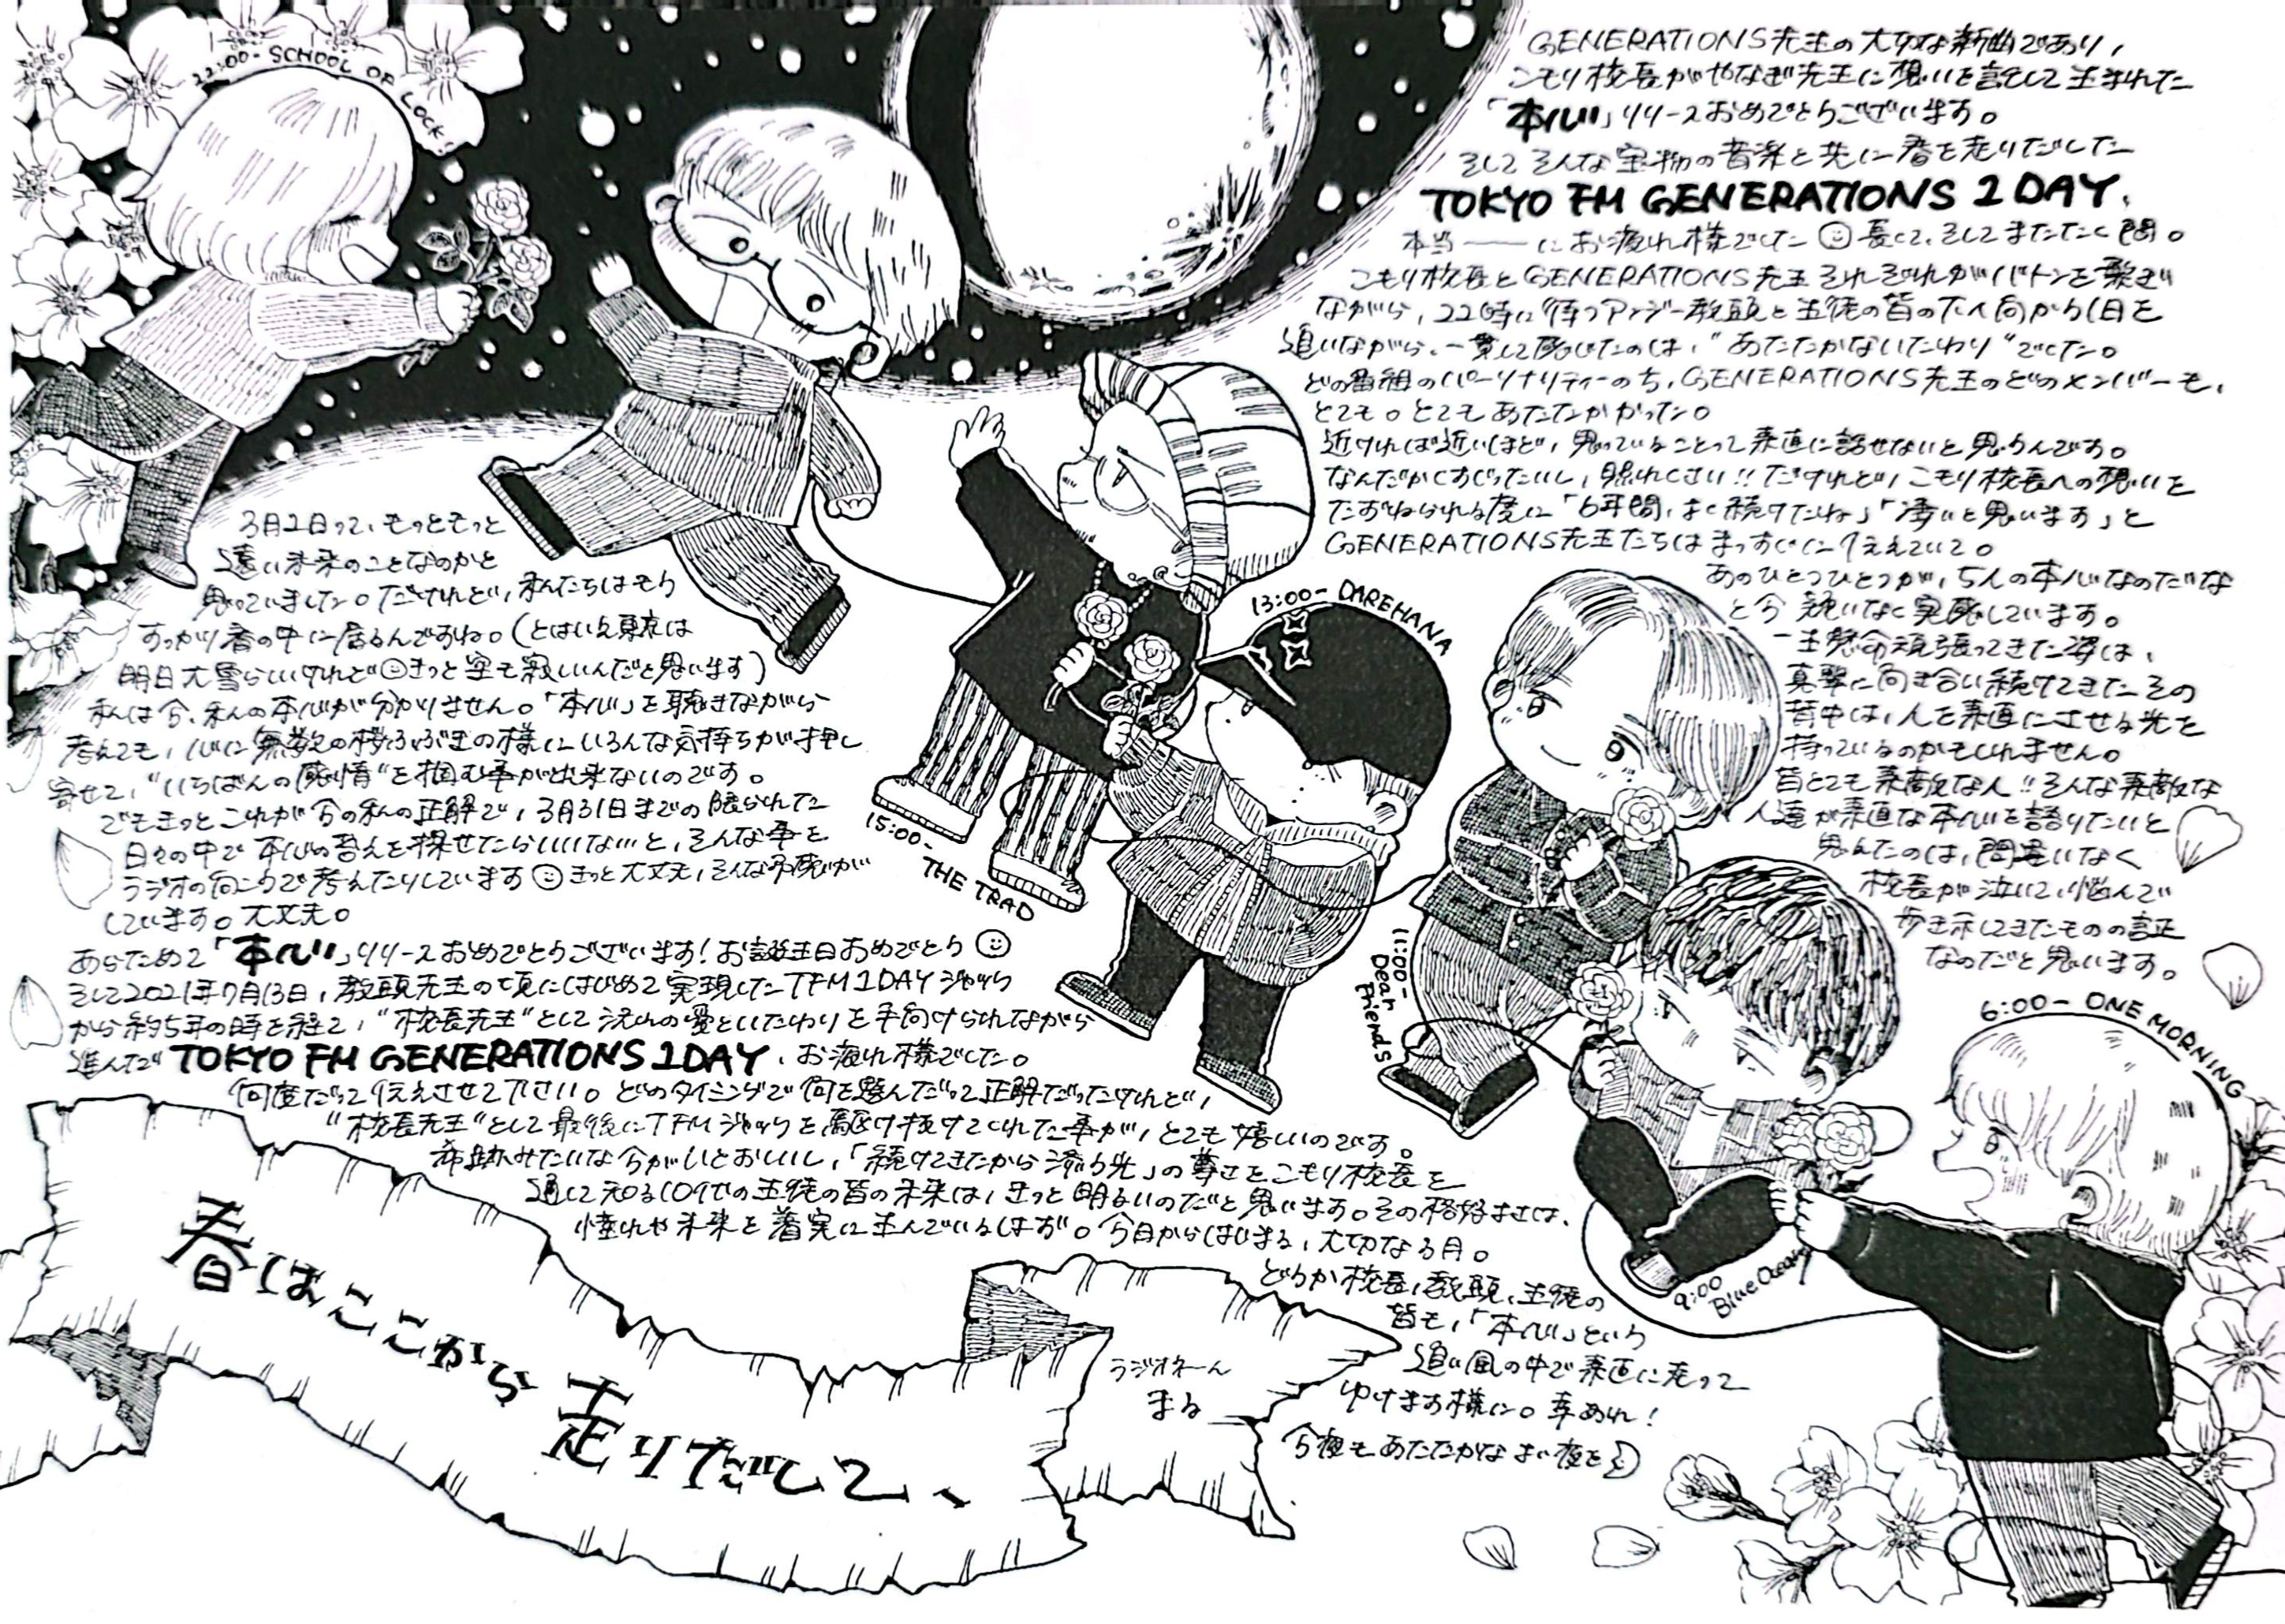 22:00- SCHOOL OF LOCK!
GENERATIONS先生の大切な新曲であり、
こもり校長がやなぎ先生に想いを託して生まれた
「本心」リリースおめでとうございます。
そしてそんな宝物の音楽と共に春を走りだした
TOKYO FM GENERATIONS 1DAY、
本当――にお疲れ様でした 長くて、そしてまたたく間。
こもり校長とGENERATIONS先生それぞれがバトンを繋ぎ
ながら、22時に待つアンジー教頭と生徒の皆の下へ向かう1日を
追いながら、一貫して感じたのは、"あたたかないたわり"でした。
どの番組のパーソナリティーの方も、GENERATIONS先生のどのメンバーも、
とても。とてもあたたかかった。
近ければ近いほど、思っていることって素直に話せないと思うんです。
なんだかくすぐったいし、照れくさい!!だけれど、こもり校長への想いを
たずねられる度に「6年間、よく続けたね」「凄いと思います」と
GENERATIONS先生たちはまっすぐに伝えていて。
あのひとつひとつが、5人の本心なのだな
と今 疑いなく実感しています。
一生懸命頑張ってきた姿は、
真摯に向き合い続けてきたその
背中は、人を素直にさせる光を
持っているのかもしれません。
皆とても素敵な人!!そんな素敵な
人達が素直な本心を語りたいと
思えたのは、間違いなく
校長が泣いて、悩んで
歩き示してきたものの証
なのだと思います。
3月1日って、もっともっと
遠い未来のことなのかと
思っていました。だけれど、私たちはもう
すっかり春の中に居るんですね。(とはいえ東京は
明日大雪らしいけれど きっと空も寂しいんだと思います)
私は今、私の本心が分かりません。「本心」を聴きながら
考えても、心に無数の桜ふぶきの様にいろんな気持ちが押し
寄せて、"いちばんの感情"を掴む事が出来ないのです。
でもきっとこれが今の私の正解で、3月31日までの限られた
日々の中で本心の答えを探せたらいいな…と、そんな事を
ラジオの向こうで考えたりしています きっと大丈夫、そんな予感が
しています。大丈夫。
あらためて「本心」リリースおめでとうございます!お誕生日おめでとう
そして2021年7月13日、教頭先生の頃にはじめて実現したTFM1DAYジャック
から約5年の時を経て、"校長先生"として沢山の愛といたわりを手向けられながら
進んだ TOKYO FM GENERATIONS 1DAY、お疲れ様でした。
何度だって伝えさせて下さい。どのタイミングで何を選んだって正解だったけれど、
"校長先生"として最後にTFMジャックを駆け抜けてくれた事が、とても嬉しいのです。
奇跡みたいな今がいとおしいし、「続けてきたから添う光」の尊さをこもり校長を
通して知る10代の生徒の皆の未来は、きっと明るいのだと思います。その格好よさは、
憧れや未来を着実に生んでいるはず。今日からはじまる、大切な3月。
どうか校長、教頭、生徒の
皆も、「本心」という
追い風の中で素直に走って
ゆけます様に。幸あれ!
今夜もあたたかなよい夜を
13:00- DAREHANA
15:00- THE TRAD
11:00- Dear Friends
9:00 Blue Ocean
6:00- ONE MORNING
春はここから走りだして、
ラジオネーム
まる